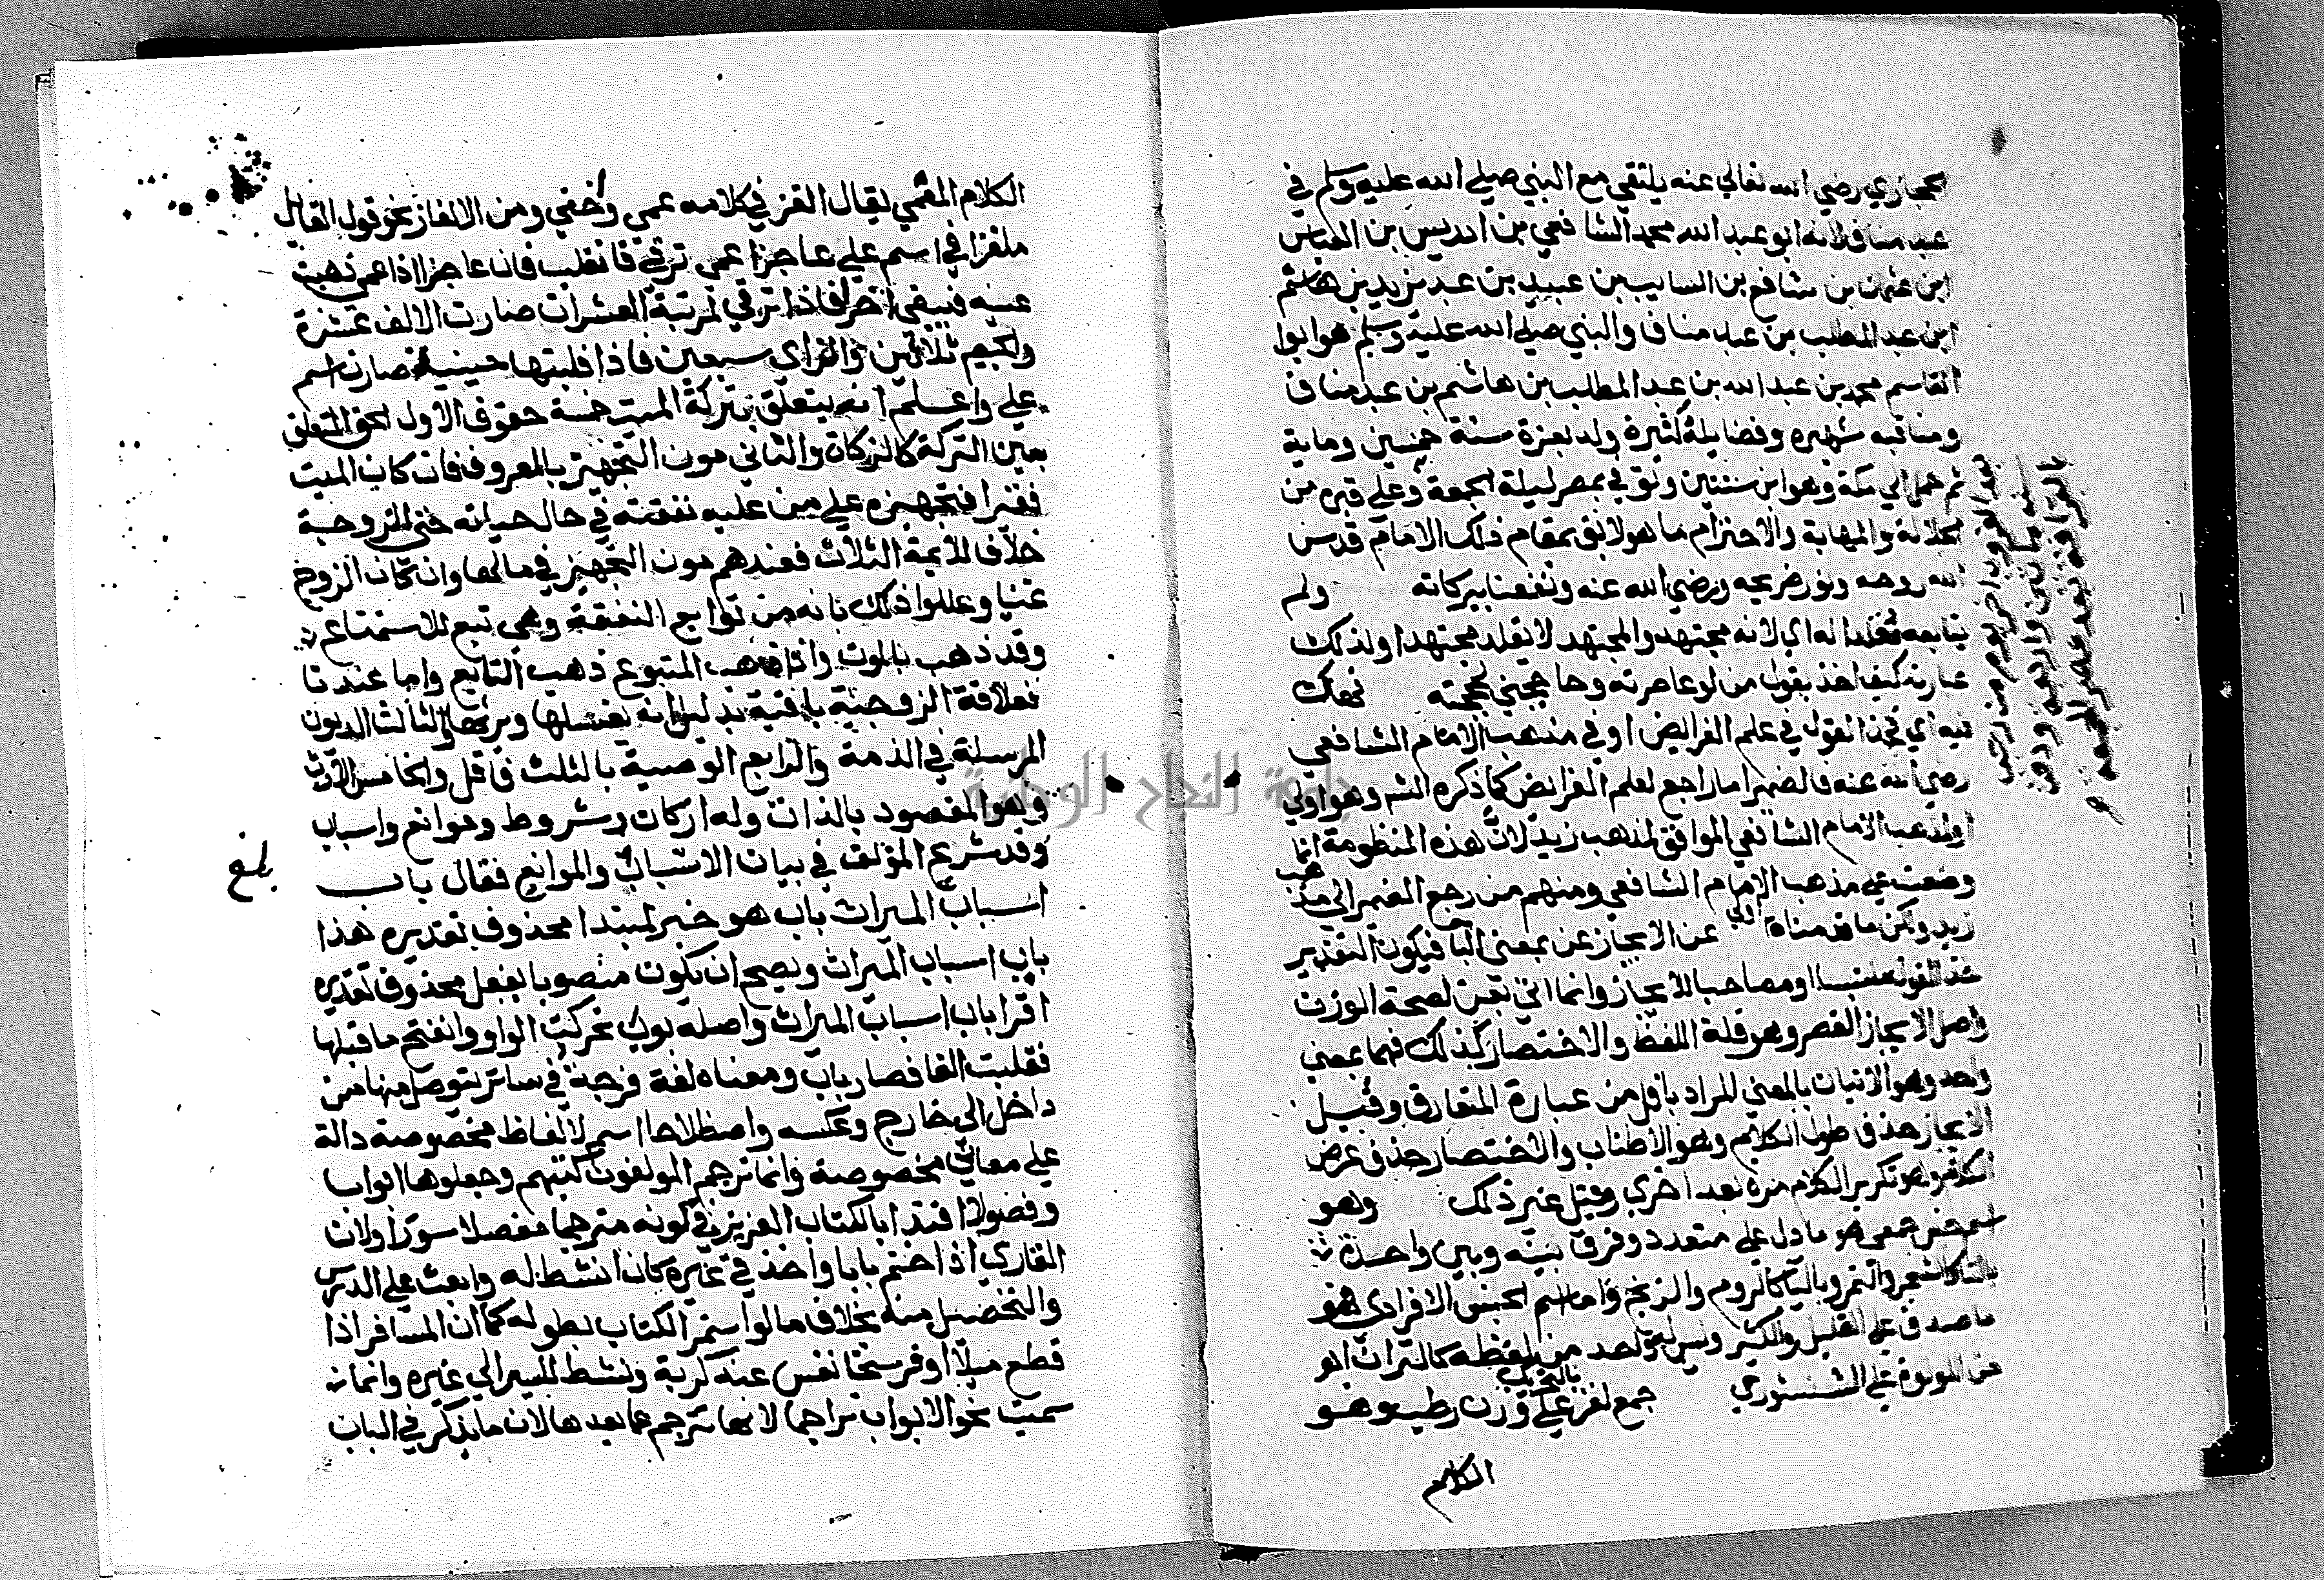 حجازي رضي الله تعالي عنه يلتقي مع النبي صلي الله عليه وسلم في
عبد مناف لانه ابو عبد الله محمد الشافعي بن ادريس بن العباس
ابن عثمان بن شافع بن السايب بن عبيد بن عبد يزيد بن هاشم
ابن عبد المطلب بن عبد مناف والنبي صلي الله عليه وسلم هو ابو
القاسم محمد بن عبد الله بن عبد المطلب بن هاشم بن عبد مناف
ومناقبه شهيره وفضايله كثيرة ولد بغزة سنة خمسين وماية
ثم حمل الي مكة وهو ابن سنتين وتوفي بمصر ليلة الجمعة وعلي قبره من
الجلالة والمهابة والاحترام ما هو لايق بمقام ذلك الامام قدس
الله روحه ونور ضريحه ورضي الله عنه ونفعنا ببركاته ولم
يتابعه مقلدا له اي لانه مجتهد والمجتهد لا يقلد مجتهدا ولذلك
عبارته كيف اخذ بقول من لو عاصرته وحاججني لحججته فهاك
فيه اي فخذ القول في علم الفرايض او في مذهب الامام الشافعي
رضي الله عنه فالضمير اما راجع لعلم الفرائض كما ذكره الشـ وهو اولي
او لمذهب الامام الشافعي الموافق لمذهب زيد لان هذه المنظومة انما
وضعت علي مذهب الامام الشافعي ومنهم من رجع الضمير الي مذهب
زيد ولكن ما قدمناه اولي عن الايجاز عن بمعنى البا فيكون التقدير
خذ القول ملتبسا او مصاحبا للايجاز وانما اتي بعن لصحة الوزن
واصل الايجاز القصر وهو قلة اللفظ والاختصار كذلك فهما بمعني
واحد وهو الاتيان بالمعني المراد باقل من عبارة المتعارف وقيل
الايجاز حذف طول الكلام وهو الاطناب والاختصار حذف عرض
الكلام وهو تكرير الكلام مرة بعد اخري وقيل غير ذلك وهو
اسم جنس جمعي هو ما دل علي متعدد وفرق بينه وبين واحدة
بالتا كالشجر والتمر وباليا كالروم والزنج واما اسم الجنس الافرادي فهو
ما صدق علي القليل والكثير وليس له واحد من لفظه كالتراب اهو
من اللولوة علي الشنشوري جمع لغز علي وزن رطب وهو
بالتحريك
الكلام
الكلام المعمي يقال الغز في كلامه عمي واخفي ومن الالغاز نحو قول القائل
ملغزا في اسم علي عاجز اعمى ترقي فانقلب فان عاجزا اذا عمي ذهبت
عينه فيبقي احرفا اذا ترقي لمرتبة العشرات صارت الالف عشرة
والجيم ثلاثين والزاي سبعين فاذا قلبتها حينيذ صارت اسم
علي واعلم انه يتعلق بتركة الميت خمسة حقوق الاول الحق المتعلق
بعين التركة كالزكاة والثاني مون التجهيز بالمعروف فان كان الميت
فقيرا فتجهيزه علي من عليه نفقته في حال حياته حتى الزوجية
خلاف للايمة الثلاث فعندهم مون التجهيز في مالها وان كان الزوج
غنيا وعللوا ذلك بانه من توابع النفقة وهي تبع للاستمتاع
وقد ذهب بالموت واذا ذهب المتبوع ذهب التابع واما عندنا
فعلاقة الزوجية باقية بدليل انه يغسلها ويرثها والثالث الديون
المرسلة في الذمة والرابع الوصية بالثلث فاقل والخامس الارث
وهو المقصود بالذات وله اركان وشروط وموانع واسباب
وقد شرع المؤلف في بيان الاسباب والموانع فقال باب
بلغ
اسباب الميراث باب هو خبر لمبتدا محذوف تقديره هذا
باب اسباب الميراث ويصح ان يكون منصوبا بفعل محذوف تقديره
اقرا باب اسباب الميراث واصله بوب تحركت الواو وانفتح ما قبلها
فقلبت الفا فصار باب ومعناه لغة فرجة في ساتر يتوصل بها من
داخل الي خارج وعكسه واصطلاحا اسم لالفاظ مخصوصة دالة
علي معاني مخصوصة وانما ترجم المولفون كتبهم وجعلوها ابوابا
وفصولا اقتدا بالكتاب العزيز في كونه مترجما مفصلا سورا ولان
القاري اذا ختم بابا واخذ في غيره كان انشط له وابعث علي الدرس
والتحصيل منه بخلاف ما لو استمر الكتاب بطوله كما ان المسافر اذا
قطع ميلا او فرسخا نفس عنه كربة ونشط للسير الي غيره وانما
سميت نحو الابواب تراجما لانها تترجم عما بعدها لان ما يذكر في الباب
جامعة النجاح الوطنية